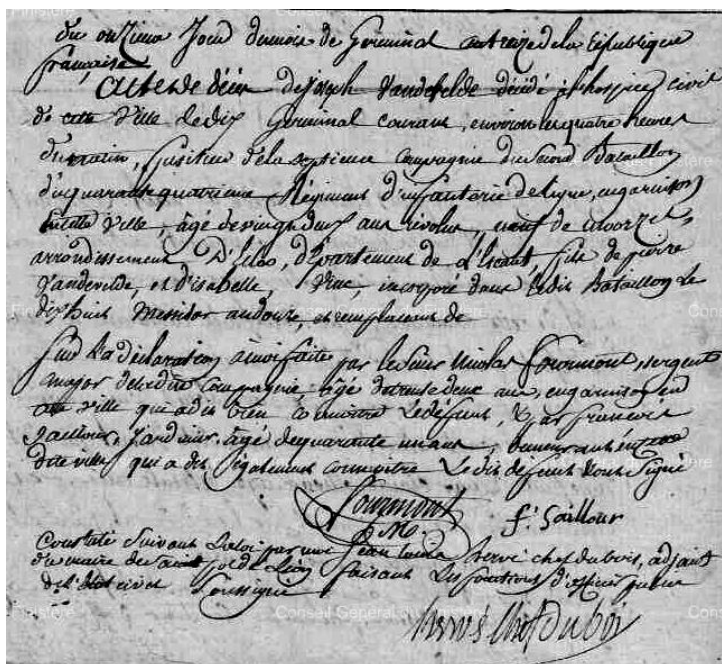 du onzieme Jour dumois de Germinal an treize dela République
française
Acte de décès de Joseph Vandevelde décédé a lhospice civil
de cette Ville le dix Germinal courant, environ les quatre heures
du matin, fusilier dela septieme Compagnie du second Bataillon
du quarante quatrieme Régiment d'infanterie de ligne, en garnison
en cette Ville, agé de vingt deux ans révolus, natif de
arrondissement D' département de L'Escaut, fils de pierre
Vandevelde, et d'isabelle, incorporé dans ledit Bataillon le
dix huit Messidor an douze, et remplacant de
Sur la déclaration à moi faite par le sieur Nicolas Fourmont, sergent
major de ladite Compagnie agé de trente deux ans, en garnison en
cette Ville qui a dit bien connoitre le défunt, & par francois
Saillour, Jardinier, agé de quarante un ans, demeurant en cette
dite ville qui a dit également connoitre le dit défunt Sont signé
Fourmont
f. Saillour
Constaté Suivant la loi par moi Jean Louis hervé chef dubois, adjoint
du maire de Saint pol de Léon faisant les fonctions d'officier public
de l'état civil Soussigné
hervé chef du bois
Finistère
Conseil Général du Finistère